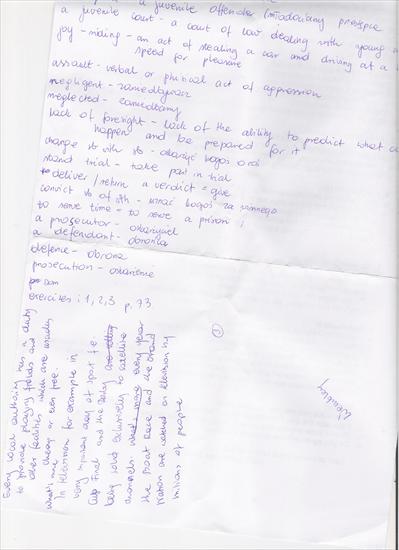 a juvenile offender (młodociany przestępca
a juvenile court - a court of law dealing with young
joy-riding - an act of stealing a car and driving at a
speed for pleasure
assault - verbal or phisical act of aggression
negligent - zaniedbujący
neglected - zaniedbany
lack of foresight - lack of the ability to predict what
happen and be prepared for it
charge sb with sth - oskarżyć kogoś o
stand trial - take part in trial
deliver / return a verdict = give
convict sb of sth - uznać kogoś za winnego
to serve time = to serve a prison
a prosecutor - oskarżyciel
a defendant - obrońca
defence - obrona
prosecution - oskarżenie
exercises : 1, 2, 3 p. 73
Every local authority has a duty
to provide playing fields and
other facilities which are usually
cheap or even free.
what's more
In television for example in
very important day of sport f.e.
Cup Final and the Derby
being sold exclusively to satellite
channels what's more every year
the Boat Race and the Grand
National are watched on television by
millions of people